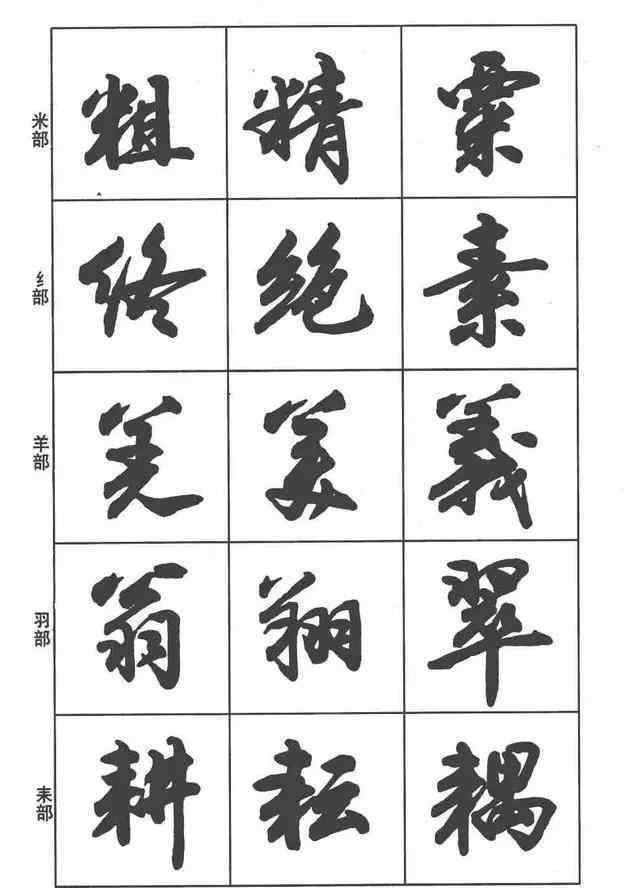 米部 粗 精 粟
纟部 终 绝 素
羊部 羌 美 義
羽部 翁 翔 翠
耒部 耕 耘 耦